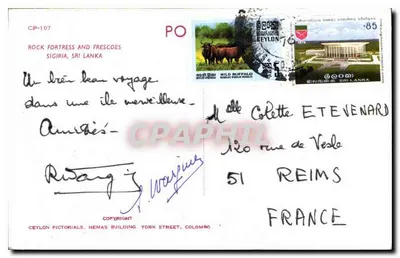 CP-107
PO
ROCK FORTRESS AND FRESCOES
SIGIRIA, SRI LANKA
Un très beau voyage
dans une île merveilleuse.
Amitiés.
WILD BUFFALO
CEYLON
85
SRI LANKA
Mlle Colette ETEVENARD
120 rue de Vesle
51 REIMS
FRANCE
COPYRIGHT
CEYLON PICTORIALS, HEMAS BUILDING, YORK STREET, COLOMBO
CPAPHIL